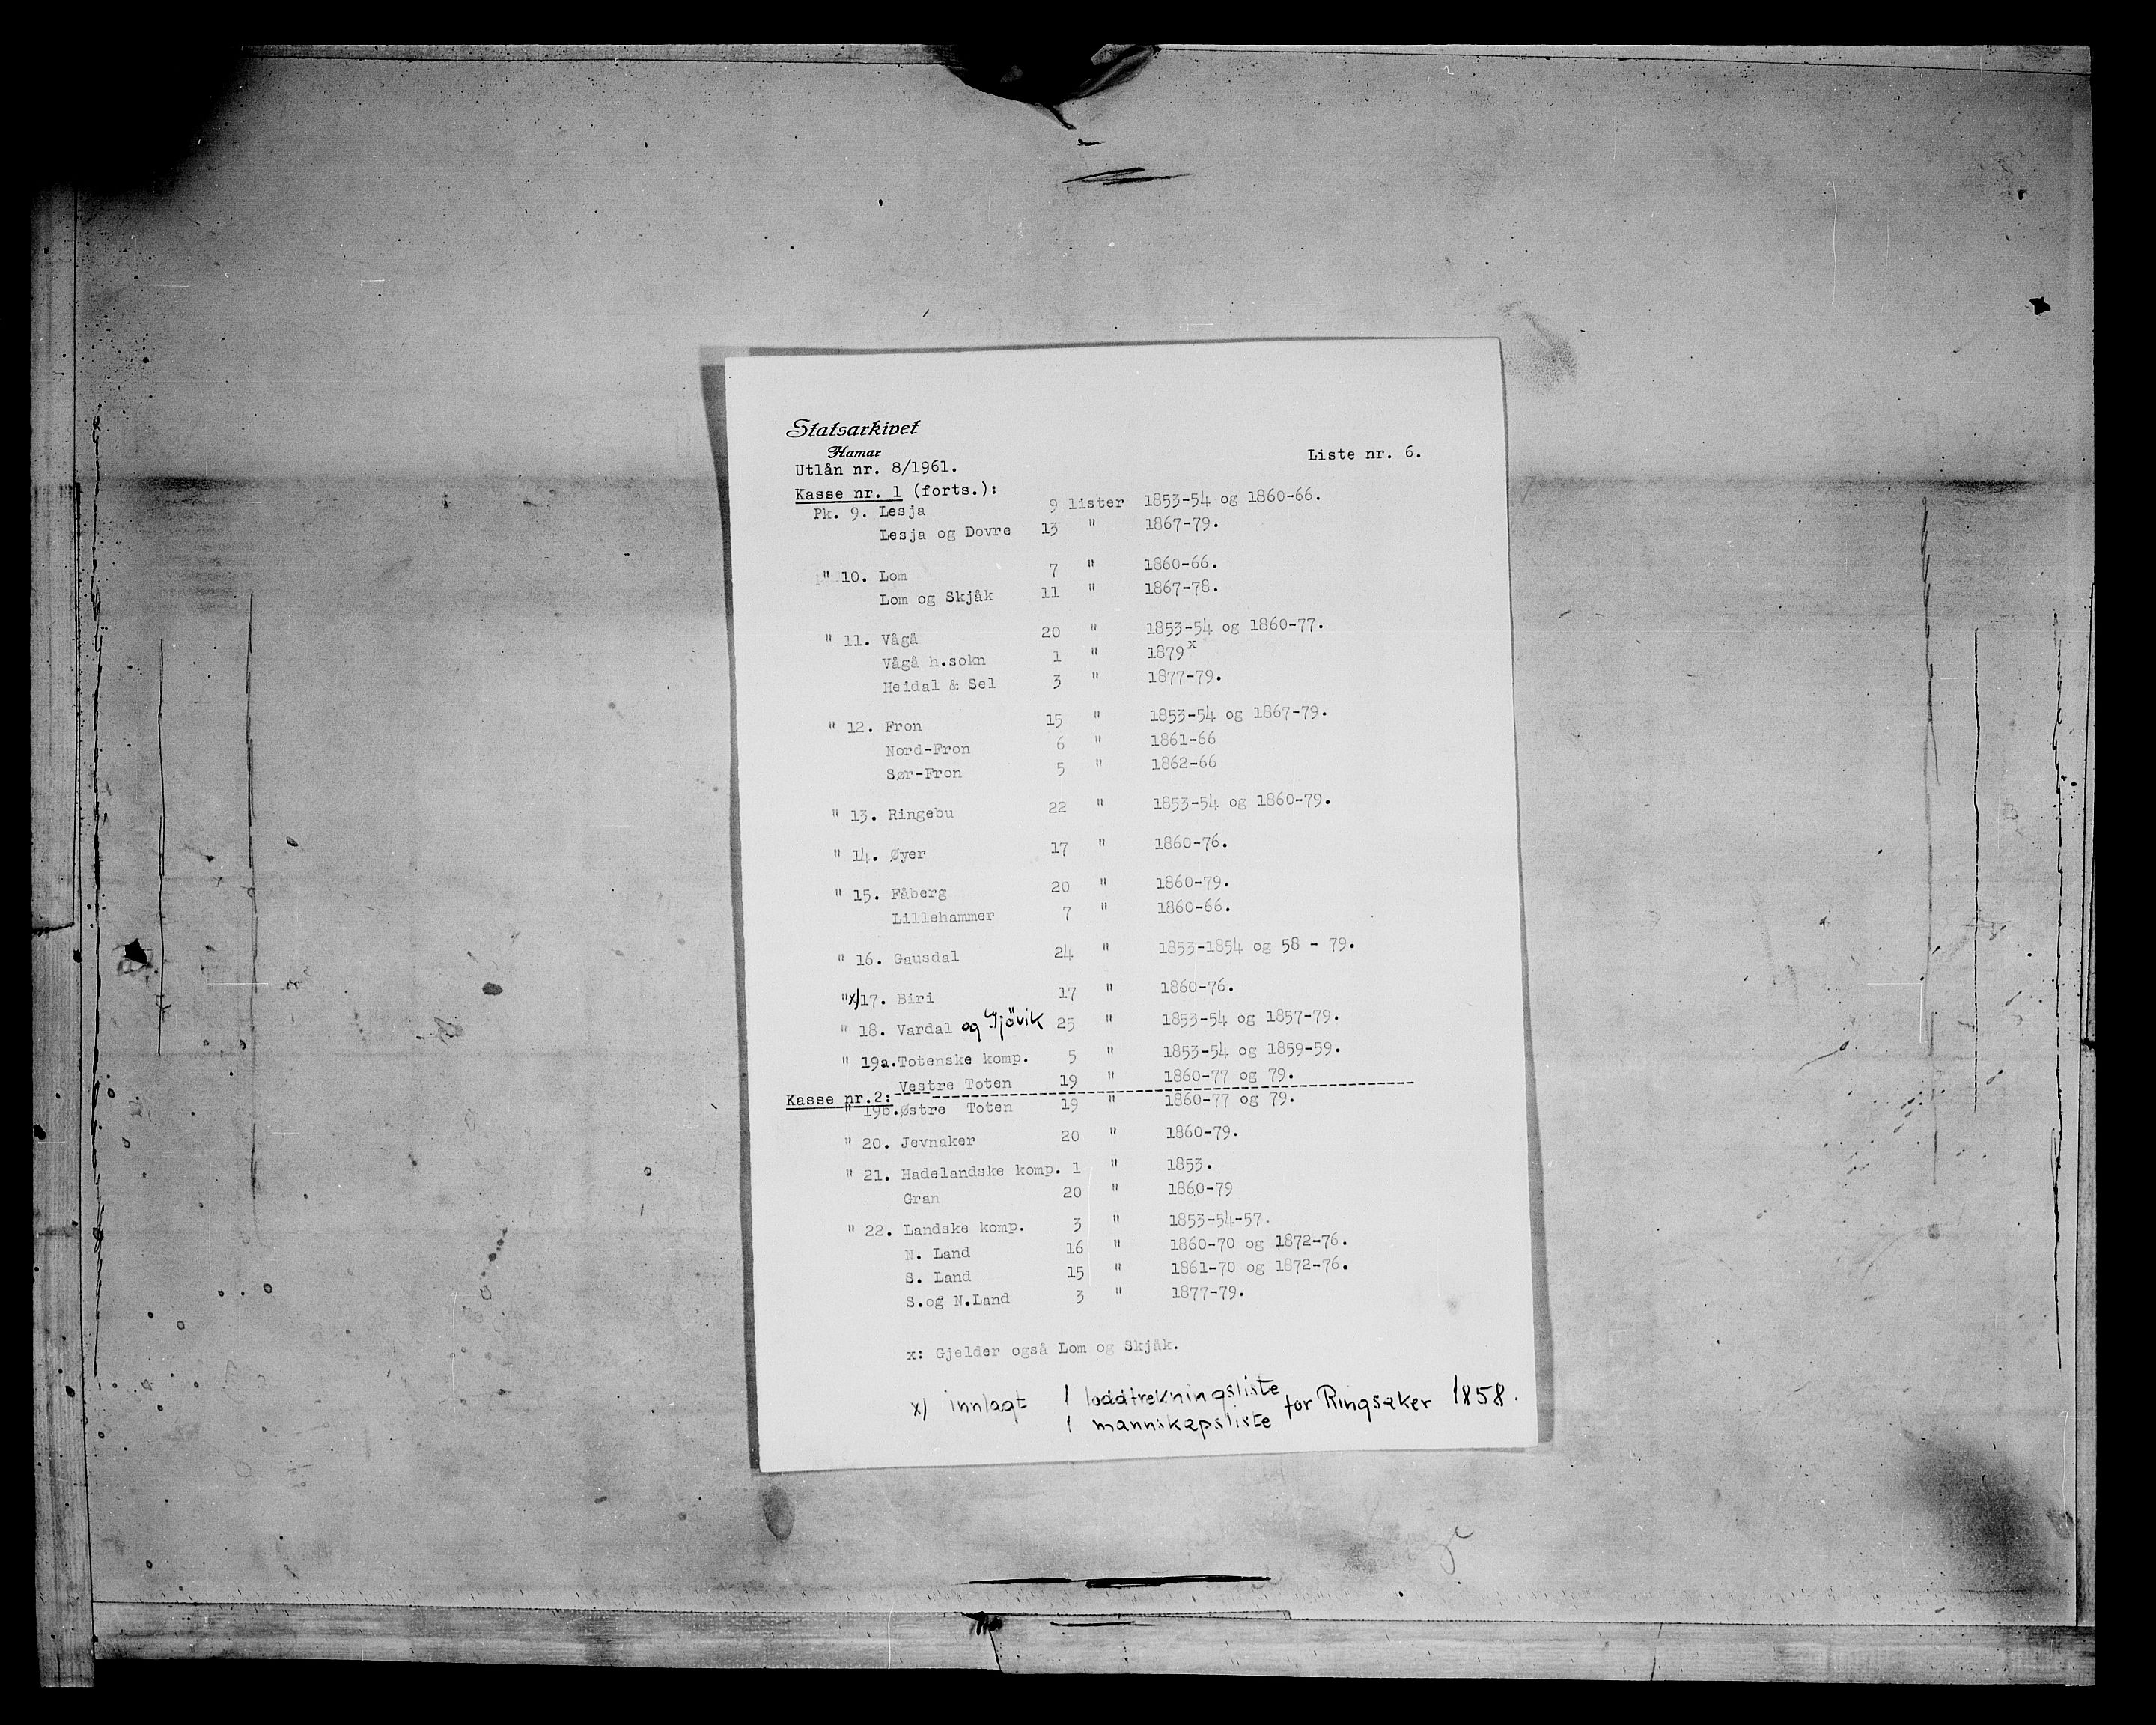 Statsarkivet
Hamar
Utlån nr. 8/1961. Liste nr. 6.
Kasse nr. 1 (forts.):
Pk. 9. Lesja 9 lister 1853-54 og 1860-66.
Lesja og Dovre 13 " 1867-79.
" 10. Lom 7 " 1860-66.
Lom og Skjåk 11 " 1867-78.
" 11. Vågå 20 " 1853-54 og 1860-77.
Vågå h.sokn 1 " 1879x
Heidal & Sel 3 " 1877-79.
" 12. Fron 15 " 1853-54 og 1867-79.
Nord-Fron 6 " 1861-66
Sør-Fron 5 " 1862-66
" 13. Ringebu 22 " 1853-54 og 1860-79.
" 14. Øyer 17 " 1860-76.
" 15. Fåberg 20 " 1860-79.
Lillehammer 7 " 1860-66.
" 16. Gausdal 24 " 1853-1854 og 58 - 79.
"x)17. Biri 17 " 1860-76.
" 18. Vardal og Gjövik 25 " 1853-54 og 1857-79.
" 19a.Totenske komp. 5 " 1853-54 og 1859-59.
Vestre Toten 19 " 1860-77 og 79.
Kasse nr.2:
" 19b.Østre Toten 19 " 1860-77 og 79.
" 20. Jevnaker 20 " 1860-79.
" 21. Hadelandske komp. 1 " 1853.
Gran 20 " 1860-79
" 22. Landske komp. 3 " 1853-54-57.
N. Land 16 " 1860-70 og 1872-76.
S. Land 15 " 1861-70 og 1872-76.
S.og N.Land 3 " 1877-79.
x: Gjelder også Lom og Skjåk.
x) innlagt 1 loddtrekningsliste for Ringsaker 1858.
1 mannskapsliste